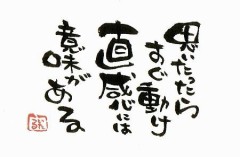 思いたったら
すぐ動け
直感には
意味がある